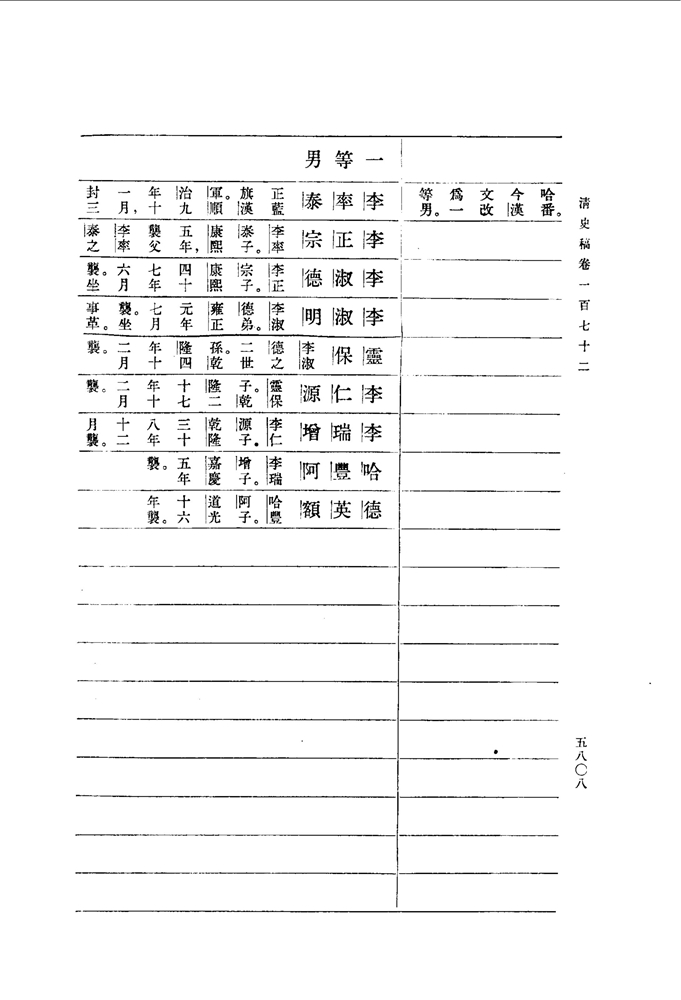 清史稿卷一百七十二
五八〇八
哈番。今漢文改爲一等男。
一等男
李率泰
正藍旗漢軍。順治九年十一月,封三
李正宗
李率泰子。康熙五年,襲父李率泰之
李淑德
李正宗子。康熙四十七年六月襲。坐
李淑明
李淑德弟。雍正元年七月襲。坐事革。
靈保
李淑德之二世孫。乾隆四年十二月襲。
李仁源
靈保子。乾隆二十七年十二月襲。
李瑞增
李仁源子。乾隆三十八年十二月襲。
哈豐阿
李瑞增子。嘉慶五年襲。
德英額
哈豐阿子。道光十六年襲。